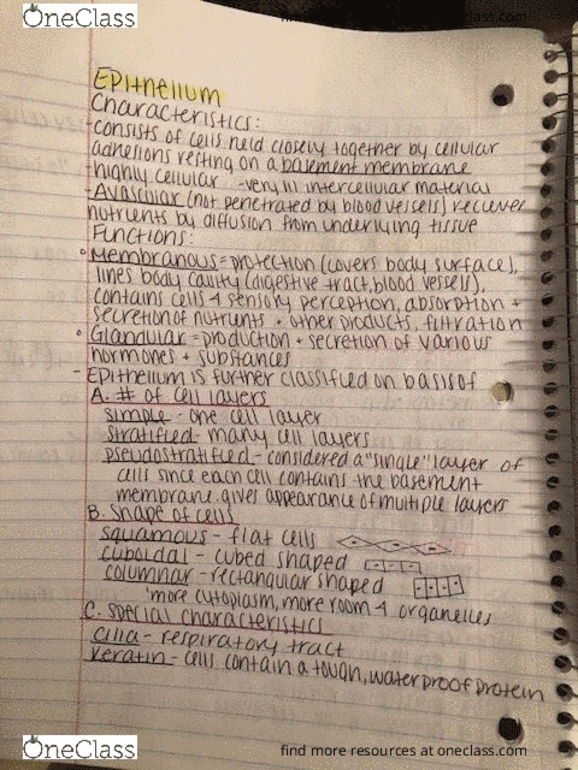 OneClass
find more resources at oneclass.com
Epithelium
Characteristics:
-consists of cells held closely together by cellular
adhesions resting on a basement membrane
-highly cellular -very lil intercellular material
-Avascular (not penetrated by blood vessels) reciever
nutrients by diffusion from underlying tissue
Functions:
°Membranous=protection (covers body surface),
lines body cavity (digestive tract, blood vessels),
contains cells 4 sensory perception, absorption +
secretion of nutrients + other products, filtration
°Glandular=production + secretion of various
hormones + substances
-Epithelium is further classified on basis of
A. # of cell layers
simple - one cell layer
stratified- many cell layers
pseudostratified-considered a "single" layer of
cells since each cell contains the basement
membrane. gives appearance of multiple layers
B. Shape of cells
squamous - flat cells
cuboidal - cubed shaped
columnar - rectangular shaped
more cytoplasm, more room 4 organelles
C. special characteristics
cilia- respiratory tract
keratin- cells contain a tough, waterproof protein
OneClass
find more resources at oneclass.com